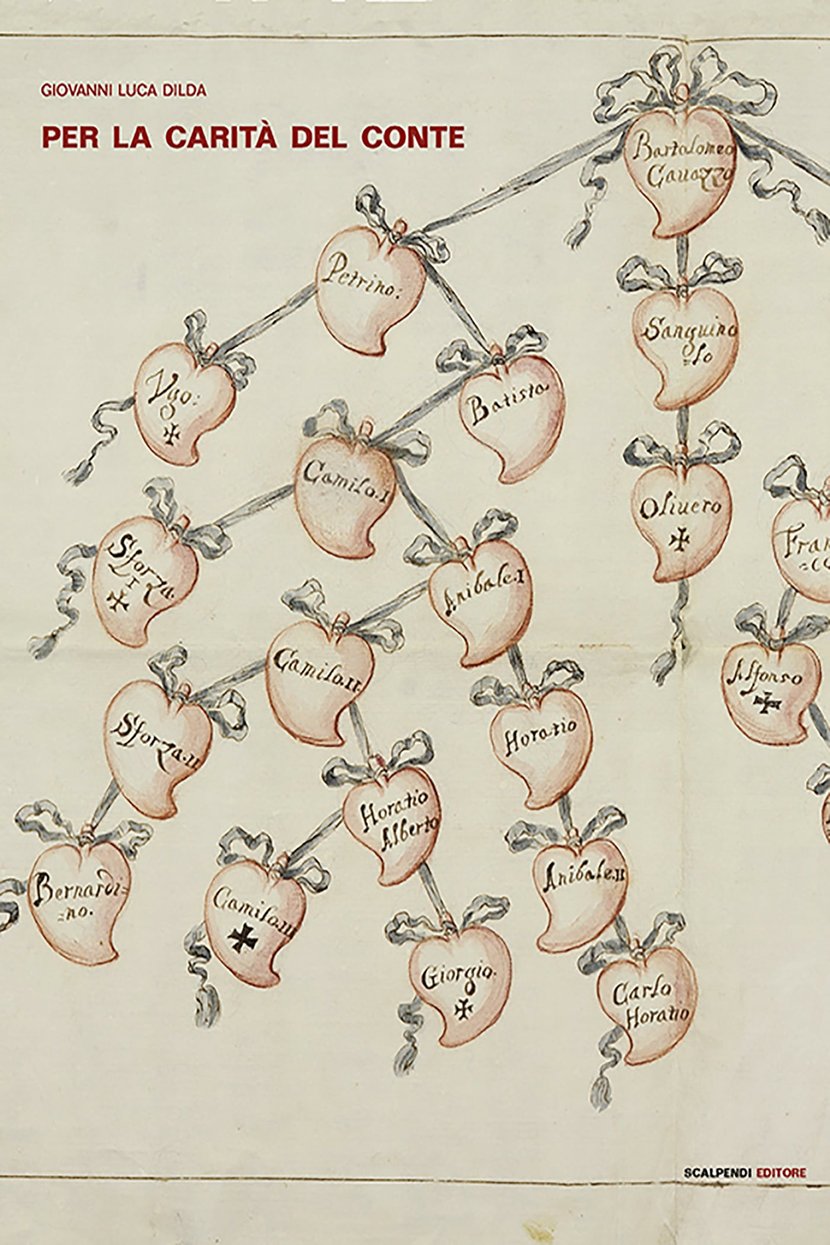 GIOVANNI LUCA DILDA
PER LA CARITÀ DEL CONTE
Bartolomeo
Gauazzo
Petrino:
Sanguino
=lo
Vgo:
Batista
Camilo.I
Oliuero
Sforza.
I
Anibale.I
Alfonso
Camilo.II
Sforza.II
Horatio
Horatio
Alberto
Bernardi=
=no.
Camilo.III
Anibale.II
Giorgio.
Carlo
Horatio
SCALPENDI EDITORE